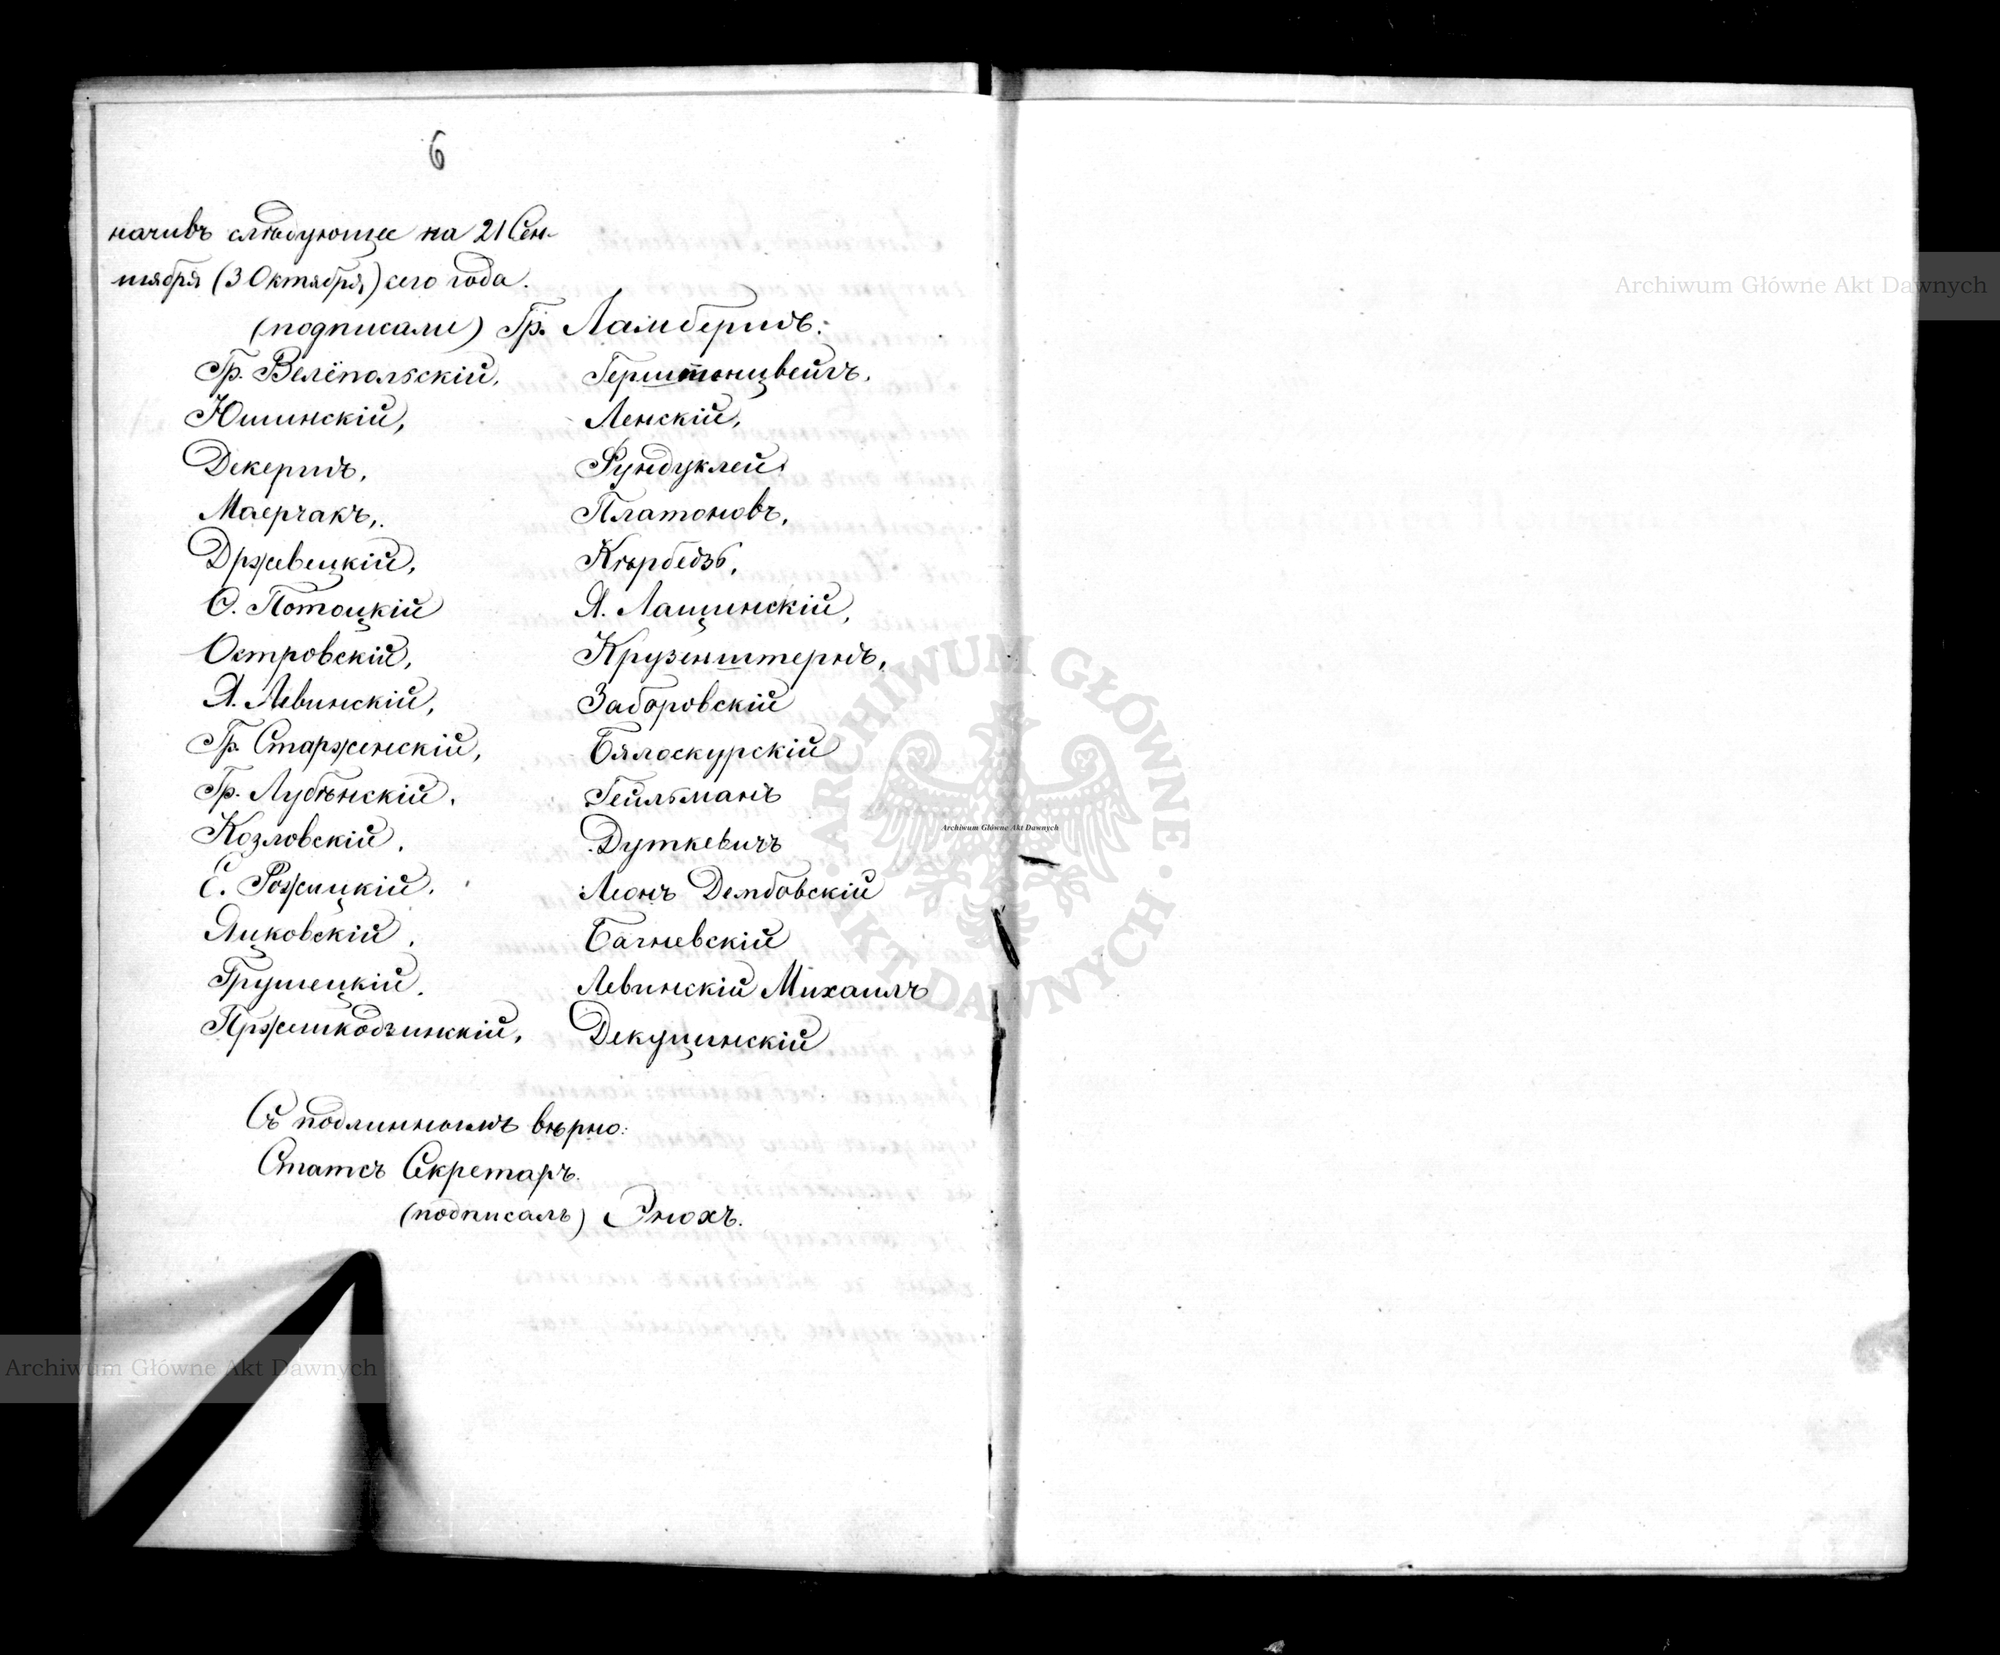 6
начивъ слѣдующее на 21 Сен-
тября (3 Октября) сего года.
(подписали) Гр. Ламбертъ:
Гр. Велёпольскій, Герштенцвейгъ,
Юшинскій, Ленскій,
Декертъ, Фундуклей
Маерчакъ, Платоновъ,
Држевецкій, Кѣрбедзъ,
О. Потоцкій Я. Лащинскій,
Островскій, Крузенштернъ,
Я. Левинскій, Заборовскій
Гр. Старженскій, Бялоскурскій
Гр. Лубѣнскій. Гейльманъ
Козловскій. Дуткевичъ
Е. Рожицкій. Леонъ Дембовскій
Яцковскій. Багневскій
Грушецкій. Левинскій Михаилъ
Пржишкодзинскій, Декуцинскій
Съ подлиннымъ вѣрно:
Статсъ Секретарь.
(подписалъ) Энохъ.
Archiwum Główne Akt Dawnych
Archiwum Główne Akt Dawnych
Archiwum Główne Akt Dawnych
ARCHIWUM GŁÓWNE AKT DAWNYCH